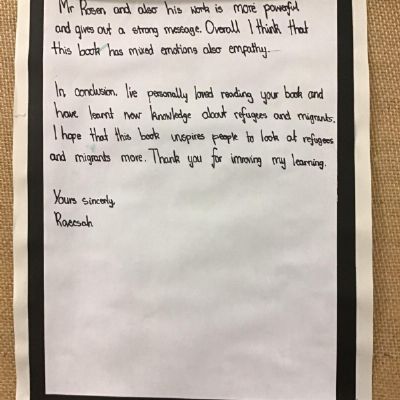 Mr Rosen and also his work is more powerful
and gives out a strong message. Overall I think that
this book has mixed emotions also empathy.
In conclusion, I'ie personally loved reading your book and
have learnt new knowledge about refugees and migrants.
I hope that this book inspires people to look at refugees
and migrants more. Thank you for imroving my learning.
Yours sincerly,
Raeesah